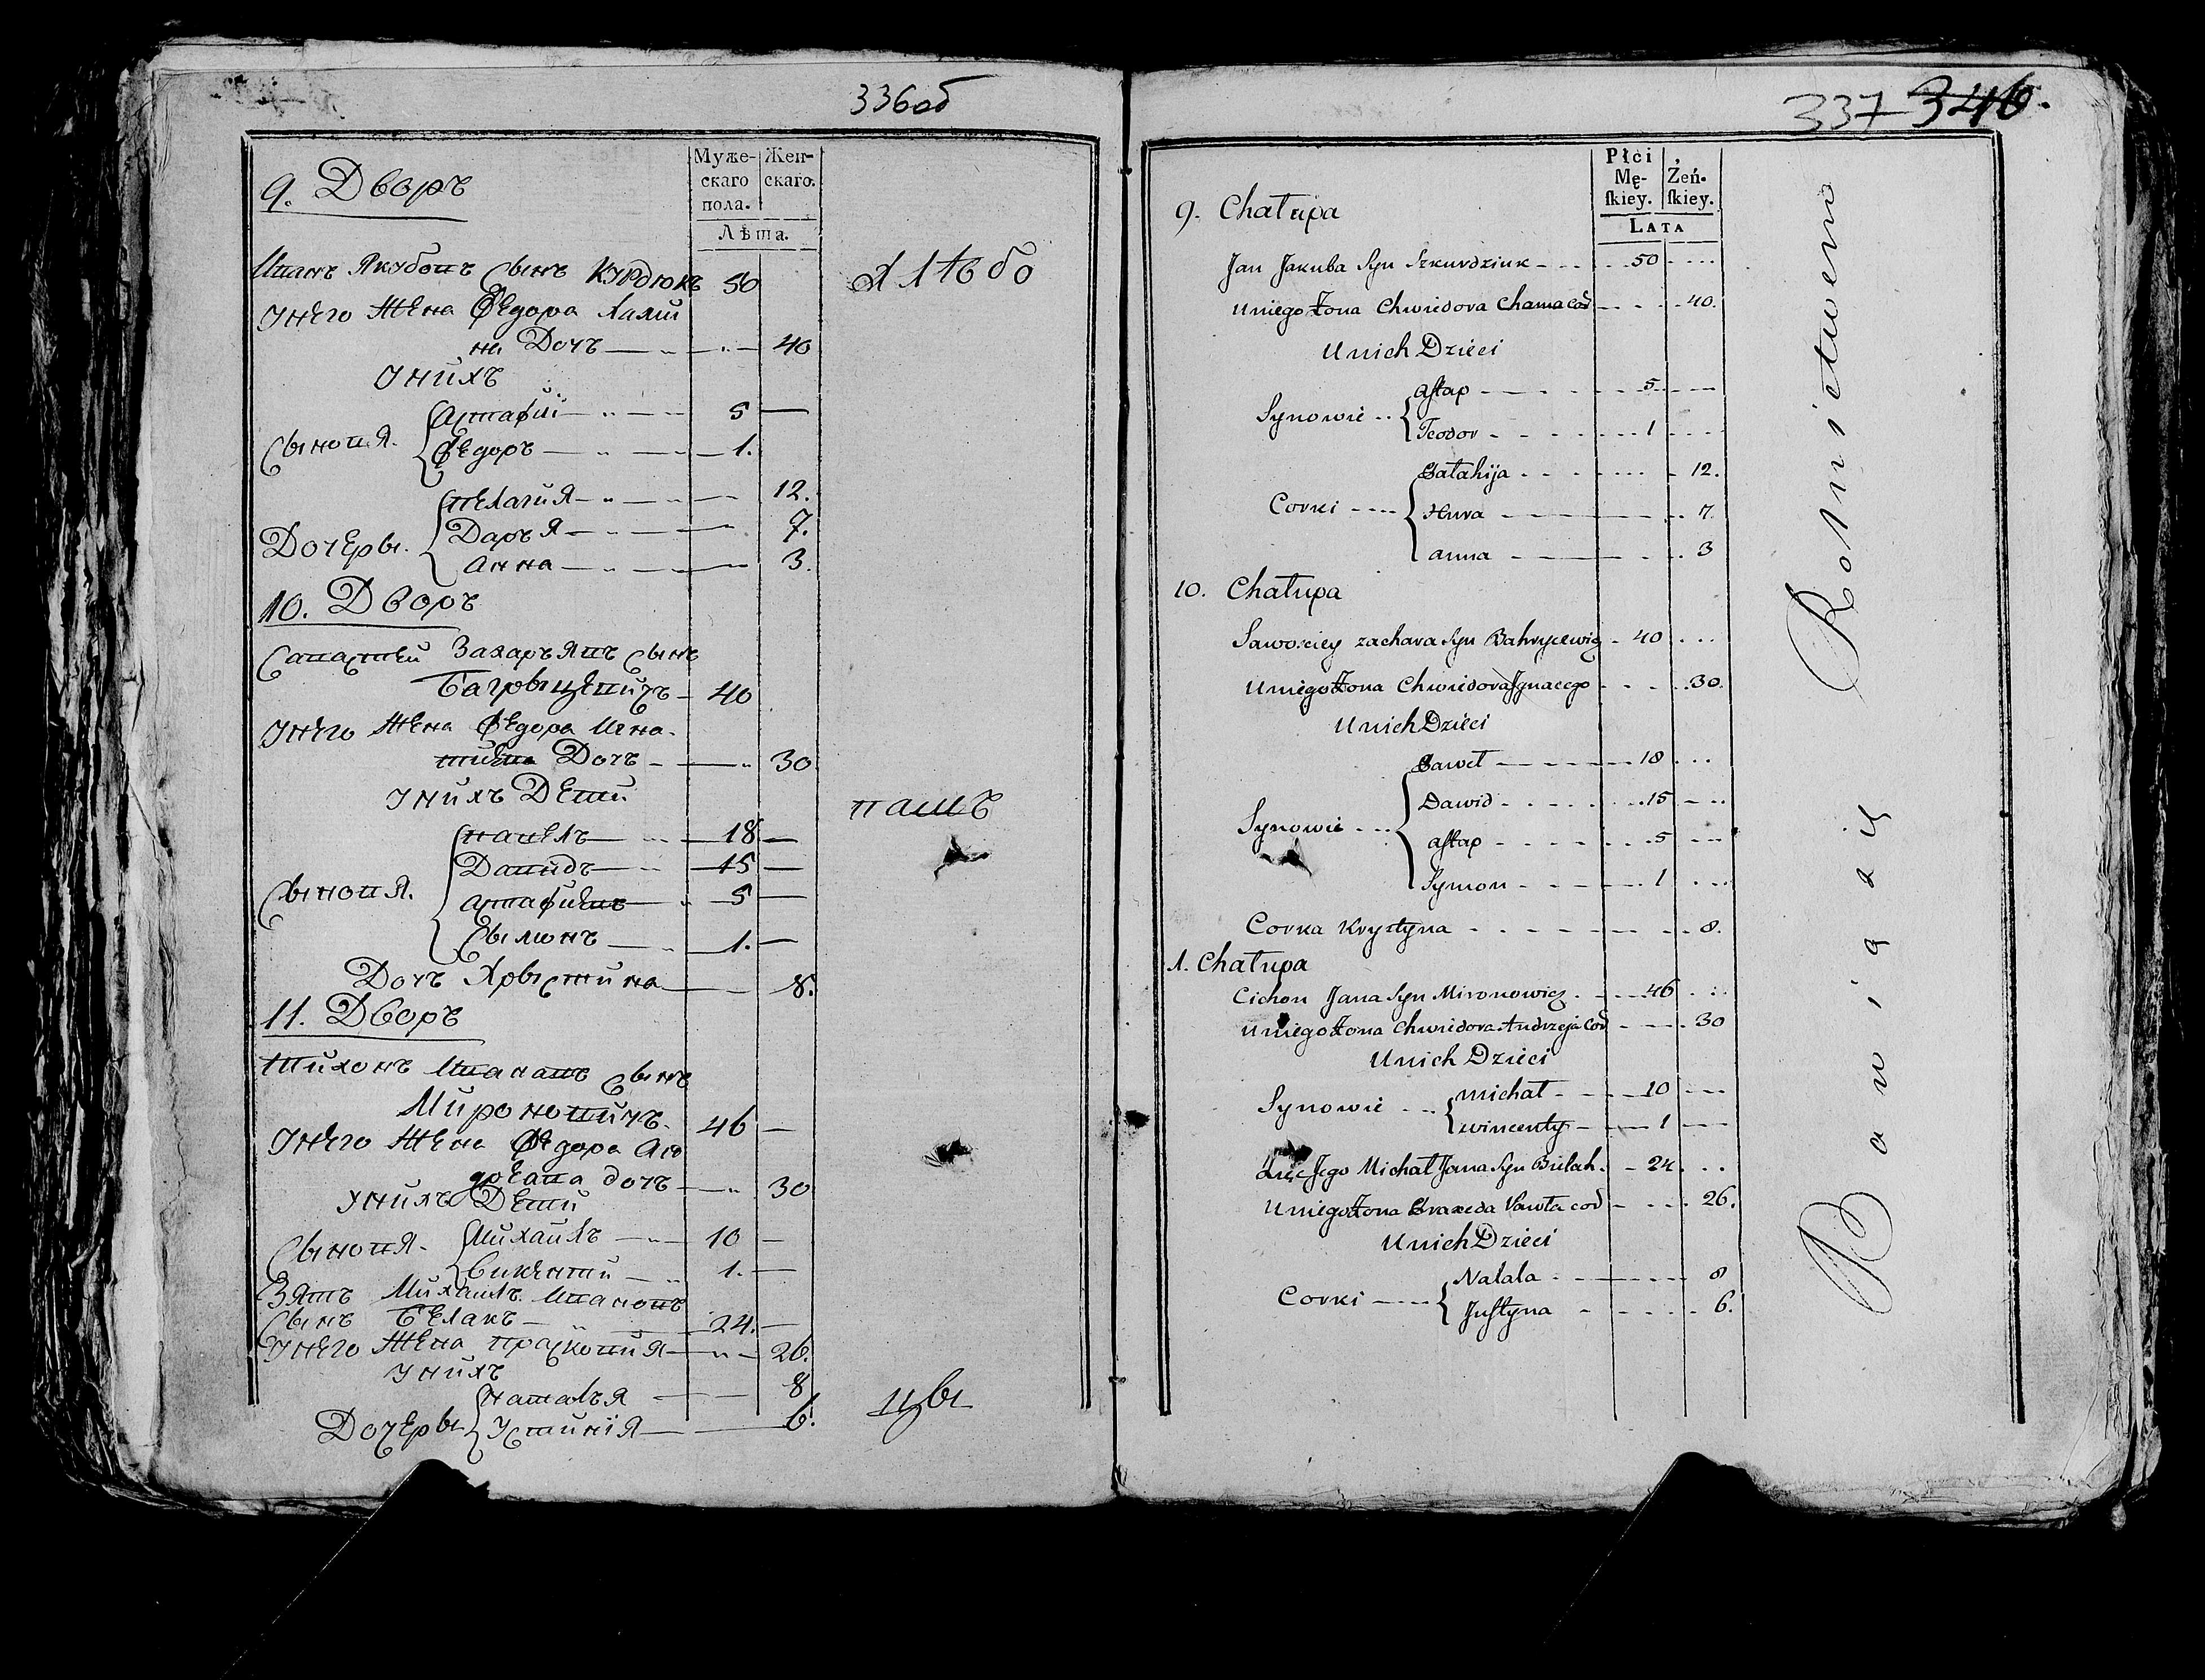 336об
Муже-
скаго
пола.
Жен-
скаго.
Лѣта.
9. Дворъ
Иванъ Якубовъ Сынъ Курдюкъ 50
Унего Жена Федора Хами
на Дочь 40
Унихъ
Сыновя.
Астафий 5
Федоръ 1.
Дочеры.
Пелагия 12.
Даръя 7.
Анна 3.
10. Дворъ
Савастей Захаръявъ Сынъ
Багрыцевичъ 40
Унего Жена Федора Игна
тиева Дочъ 30
Унихъ Дети
Сыновя.
Павелъ 18
Давидъ 15
Астафиевъ 5
Сымонъ 1.
Дочъ Хрыстина 8.
11. Дворъ
Тихонъ Ивановъ Сынъ
Мироновичъ. 46
Унего Жена Федора Ан
дреева дочъ 30
Унихъ Дети
Сыновя.
Михайлъ 10
Викенти 1.
Зять Михайлъ Ивановъ
Сынъ Белакъ 24.
Унего Жена Прасковия 26.
Унихъ 8
Дочеры
Наталья
Устиния 6.
вашъ
цы
337 346.
Płci
Mę-
ſkiey.
Żeń-
ſkiey.
Lata
9. Chałupa
Jan Jakuba Syn Szkurdziuk 50
Uniego Żona Chwiedora Chama Cod 40.
Unich Dzieci
Synowie
Astap 5
Teodor 1
Corki
Pałahija 12.
Huva 7
Anna 3
10. Chałupa
Sawosciey Zachara Syn Bahrycewicz 40
Uniego Żona Chwiedora Jgnacego 30.
Unich Dzieci
Synowie
Paweł 18
Dawid 15
Astap 5
Symon 1
Corka Krystyna 8.
1. Chałupa
Cichon Jana Syn Mironowicz 46
Uniego Żona Chwiedora Andrzeja Cod 30
Unich Dzieci
Synowie
Michał 10
Wincenty 1
Zięc Jego Michał Jana Syn Bielak 24
Uniego Żona Praxeda Pawła cod 26.
Unich Dzieci
Corki
Natala 8
Justyna 6.
Rotmistwem